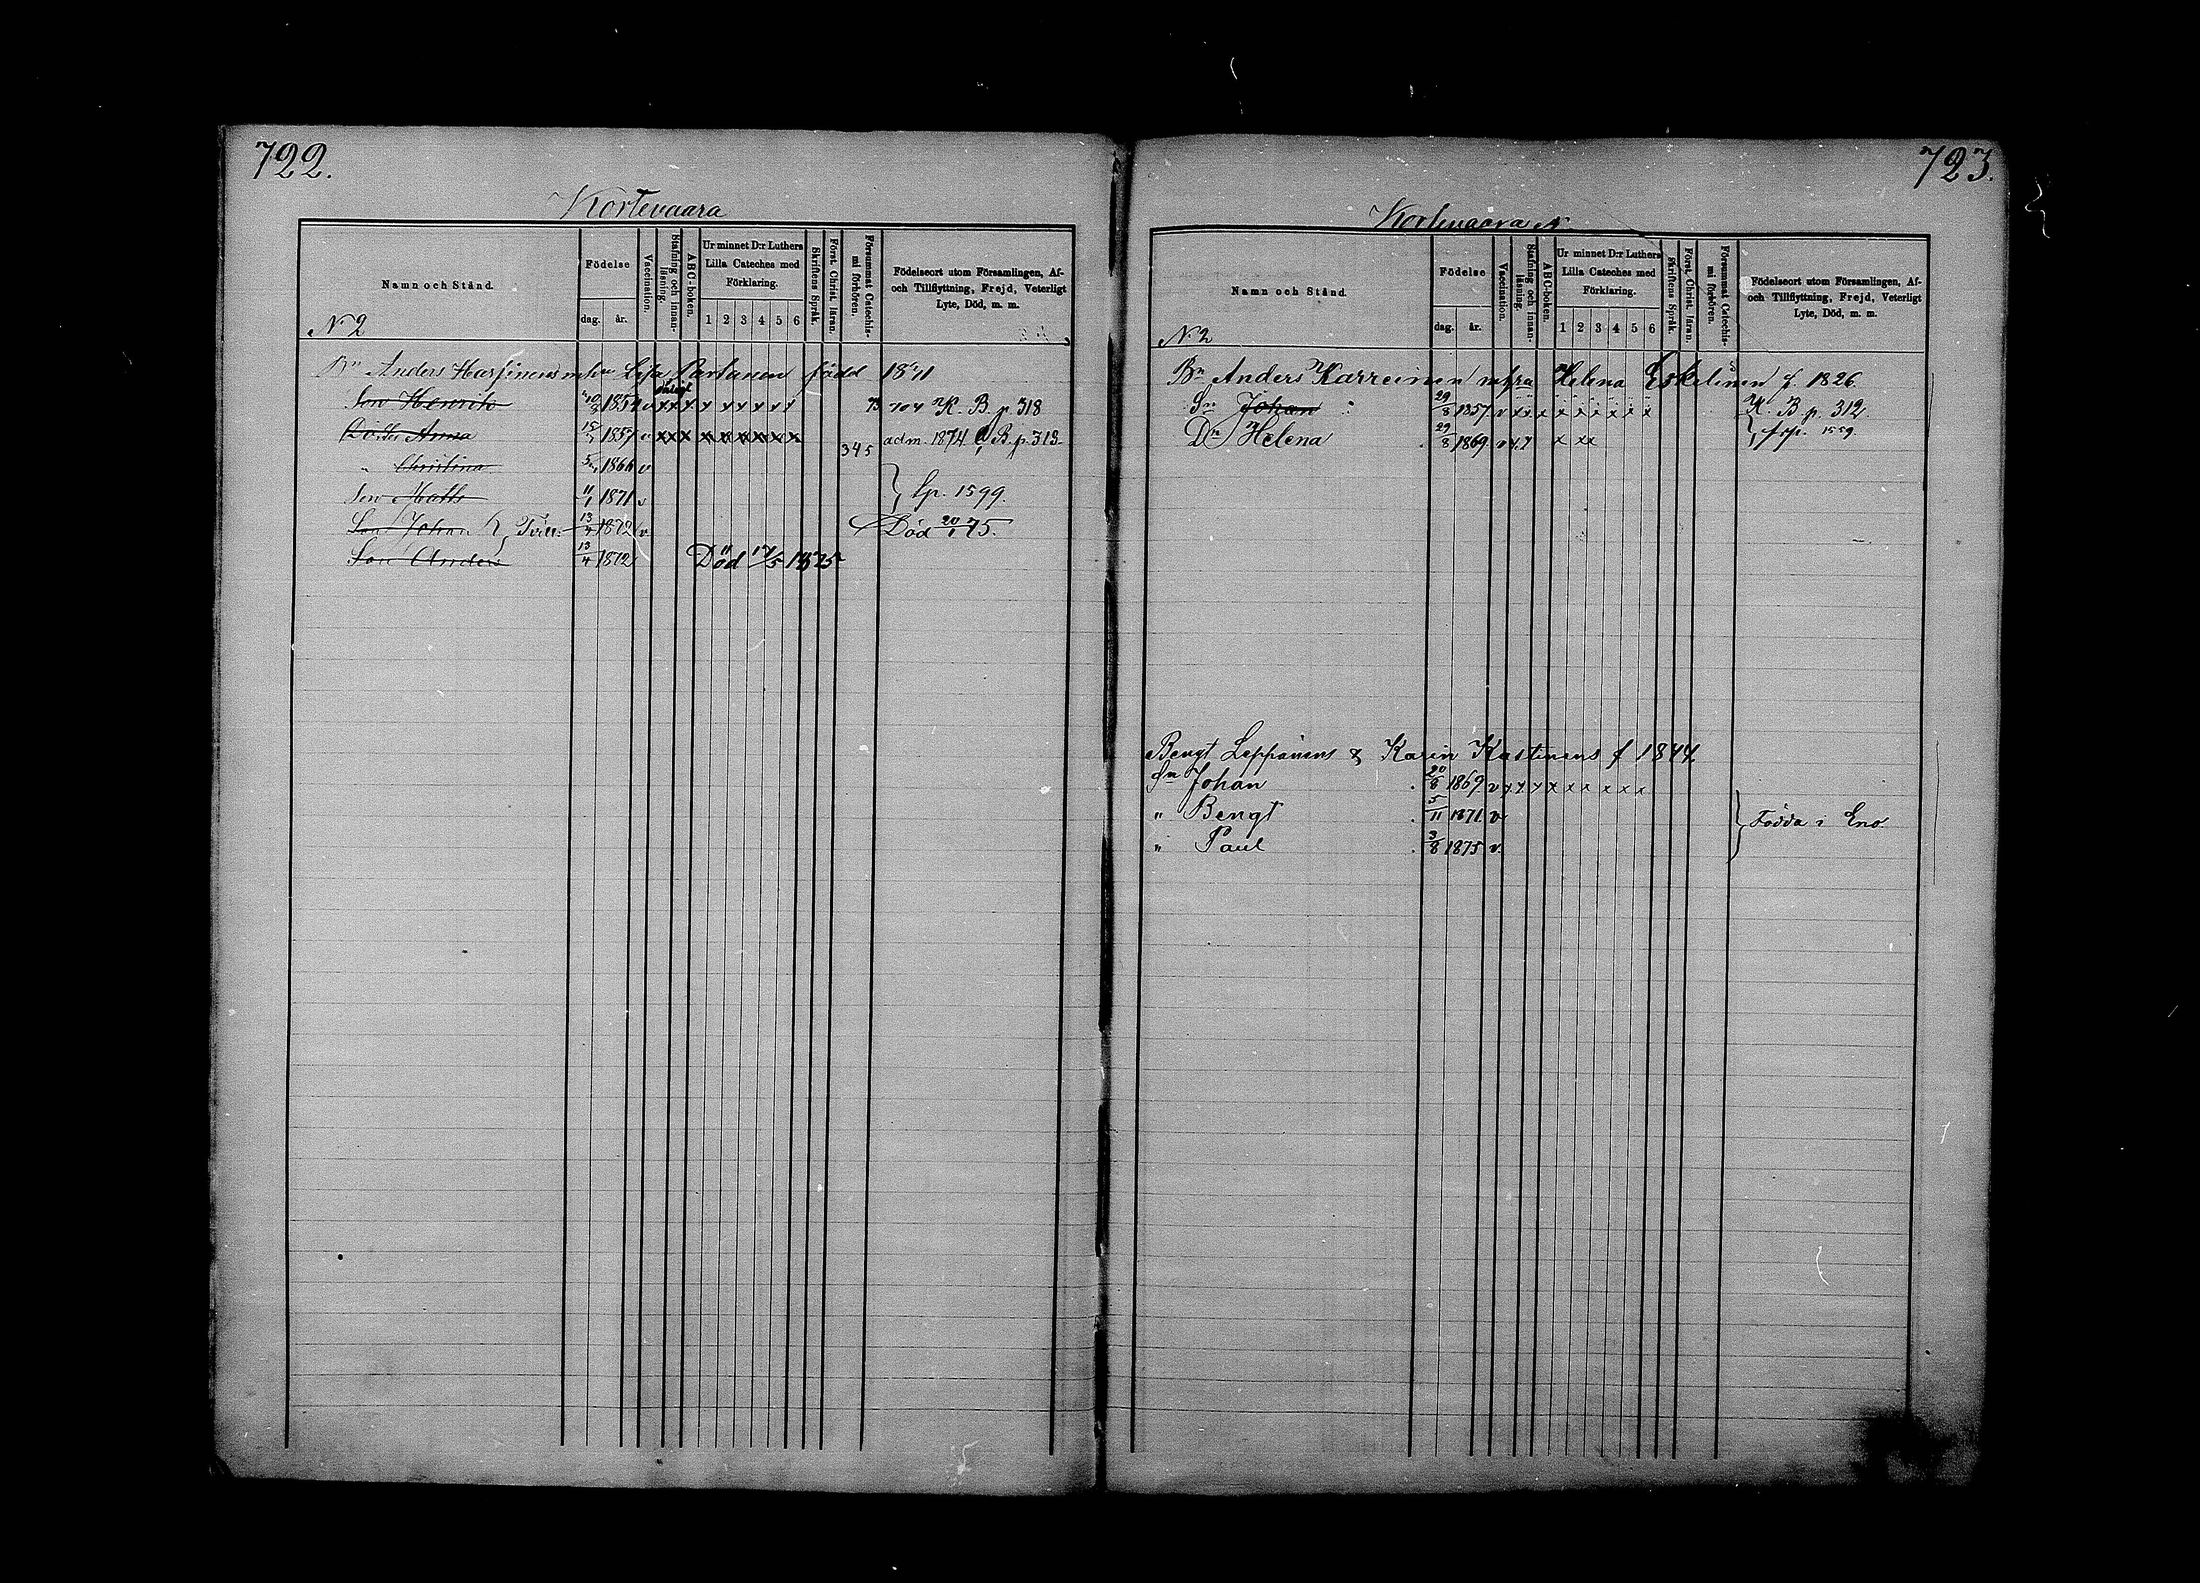 722.
Kortevaara
Namn och Stånd.
Födelse
dag. år.
Vaccination.
Stafning och innan-läsning.
ABC-boken.
Ur minnet D:r Luthers Lilla Cateches med Förklaring.
1 2 3 4 5 6
Skriftens Språk.
Först. Christ. läran.
Försummat Catechis-mi förhören.
Födelseort utom Församlingen, Af-
och Tillflyttning, Frejd, Veterligt
Lyte, Död, m. m.
N 2
Bn Anders född 1841
Son Henrik 1854 v x x x x x x x x x 73 704 K. B. p. 318
Dotter Anna 1857 v x x x x x x x x x 345 adm. 1874 B. p. 313
" Christina 1866 v
Son Matts 11/1 1871 v } Lp. 1599.
Son Johan } Tvill. 13/4 1872 v Död 20/1 75.
Son Anders 13/4 1872 Död 17/5 1875
723.
Kortevaara N
Namn och Stånd.
Födelse
dag. år.
Vaccination.
Stafning och innan-läsning.
ABC-boken.
Ur minnet D:r Luthers Lilla Cateches med Förklaring.
1 2 3 4 5 6
Skriftens Språk.
Först. Christ. läran.
Försummat Catechis-mi förhören.
Födelseort utom Församlingen, Af-
och Tillflyttning, Frejd, Veterligt
Lyte, Död, m. m.
N 2
Bn Anders Karreinen Helena Eskelinen f. 1826.
Sn Johan 29/8 1857 v x x x x x x x x x K. B p. 312.
Dn Helena 29/8 1869 v x x x x x 1559.
Bengt Leppänens & Karin Kastinens f 1844.
Sn Johan 20/8 1869 v x x x x x x x x x
" Bengt 5/11 1871 v } Födda i Eno
" Paul 3/8 1875 v.